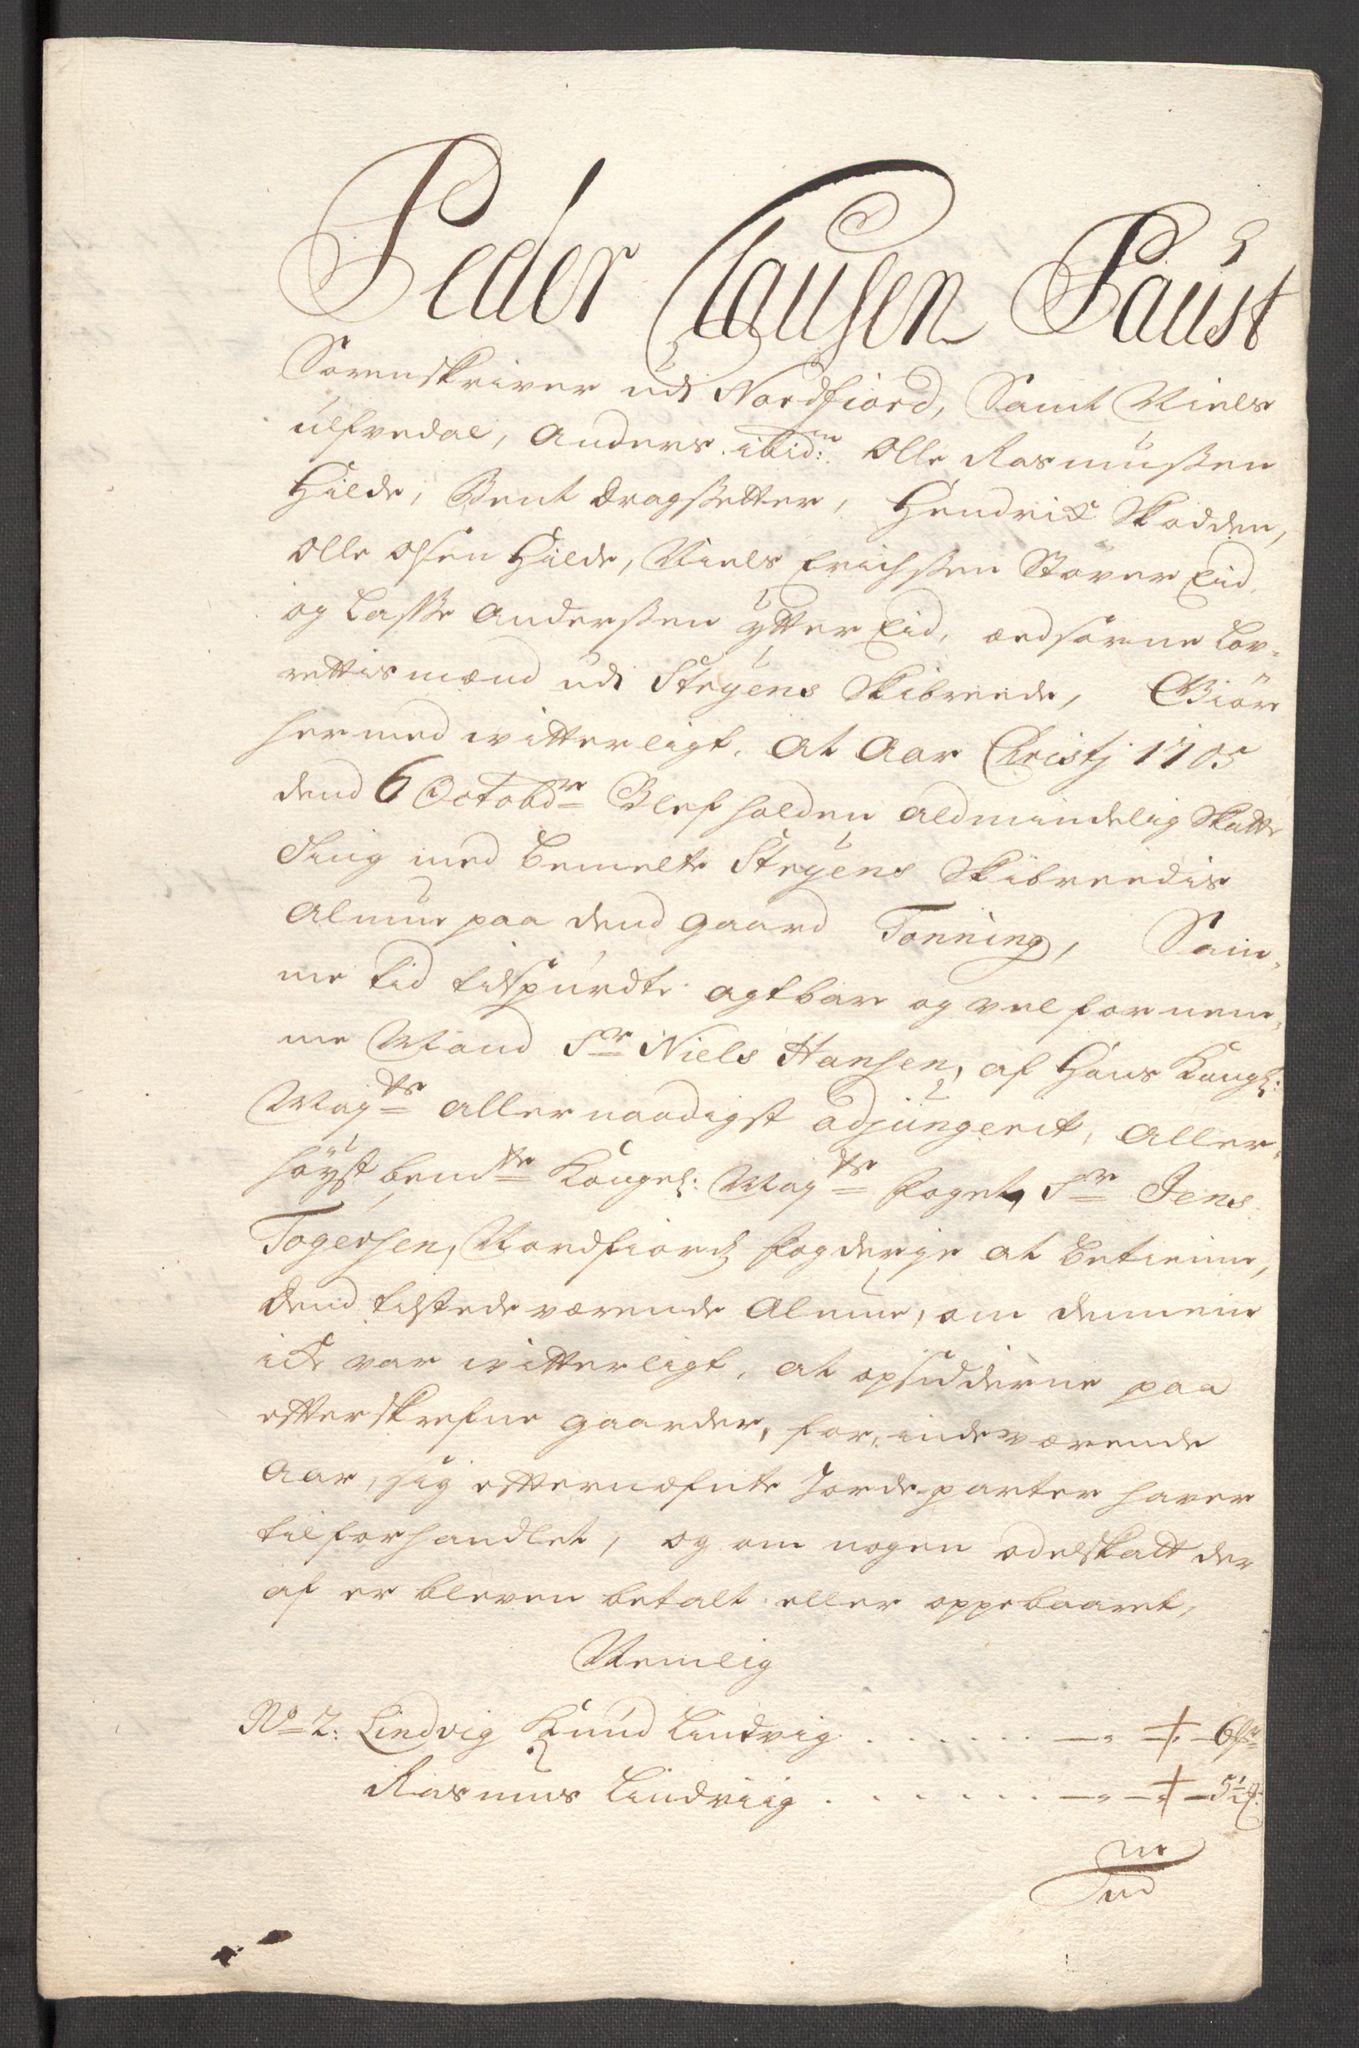 Peder Clausen Faust
Sorenskriver udi Nordfiord, Samt Niels
ulfvedal, Anders ibid:m Olle Rasmussen
Hilde, Bent dragsetter, Hendrik Skodden,
Olle Olsen Hilde, Niels Erichssen Støver Eid,
og Lasse Anderssen ytter Eid, ædsorne Lov-
rettis mænd udi Steyens Skibreede, Giör
hermed witterligt, at Aar Christj 1705
dend 6 Octobr Blef holden aldmindelig Skatte
Ting med bemelte Steyens Skibreedis
Almue paa dend gaard Tonning, Sam-
me tid tilspurdte agtbar og velfornem-
me Mand Sr Niels Hansen, af Hans Kongl:
Mayts allernaadigst adjungerit, aller-
höyst bemte Kongl: Mayts foget, Sr Jens
Togersen, Nordfiords fogderje at betienne,
dend tilstedeværende Almue, om dennem
icke var witterligt, at opsidderne paa
efterskrefne gaarder, for indeværende
Aar, sig efternæfnte Jordeparter haver
tilforhandlet, og om nogen odelskatt der
af er bleven betalt eller oppebaaret,
Nemlig
No 2: Lindvig Knud Lindvig . . . . . . — " — 6 mr
Rasmus Lindviig . . . . . . — " — 5½